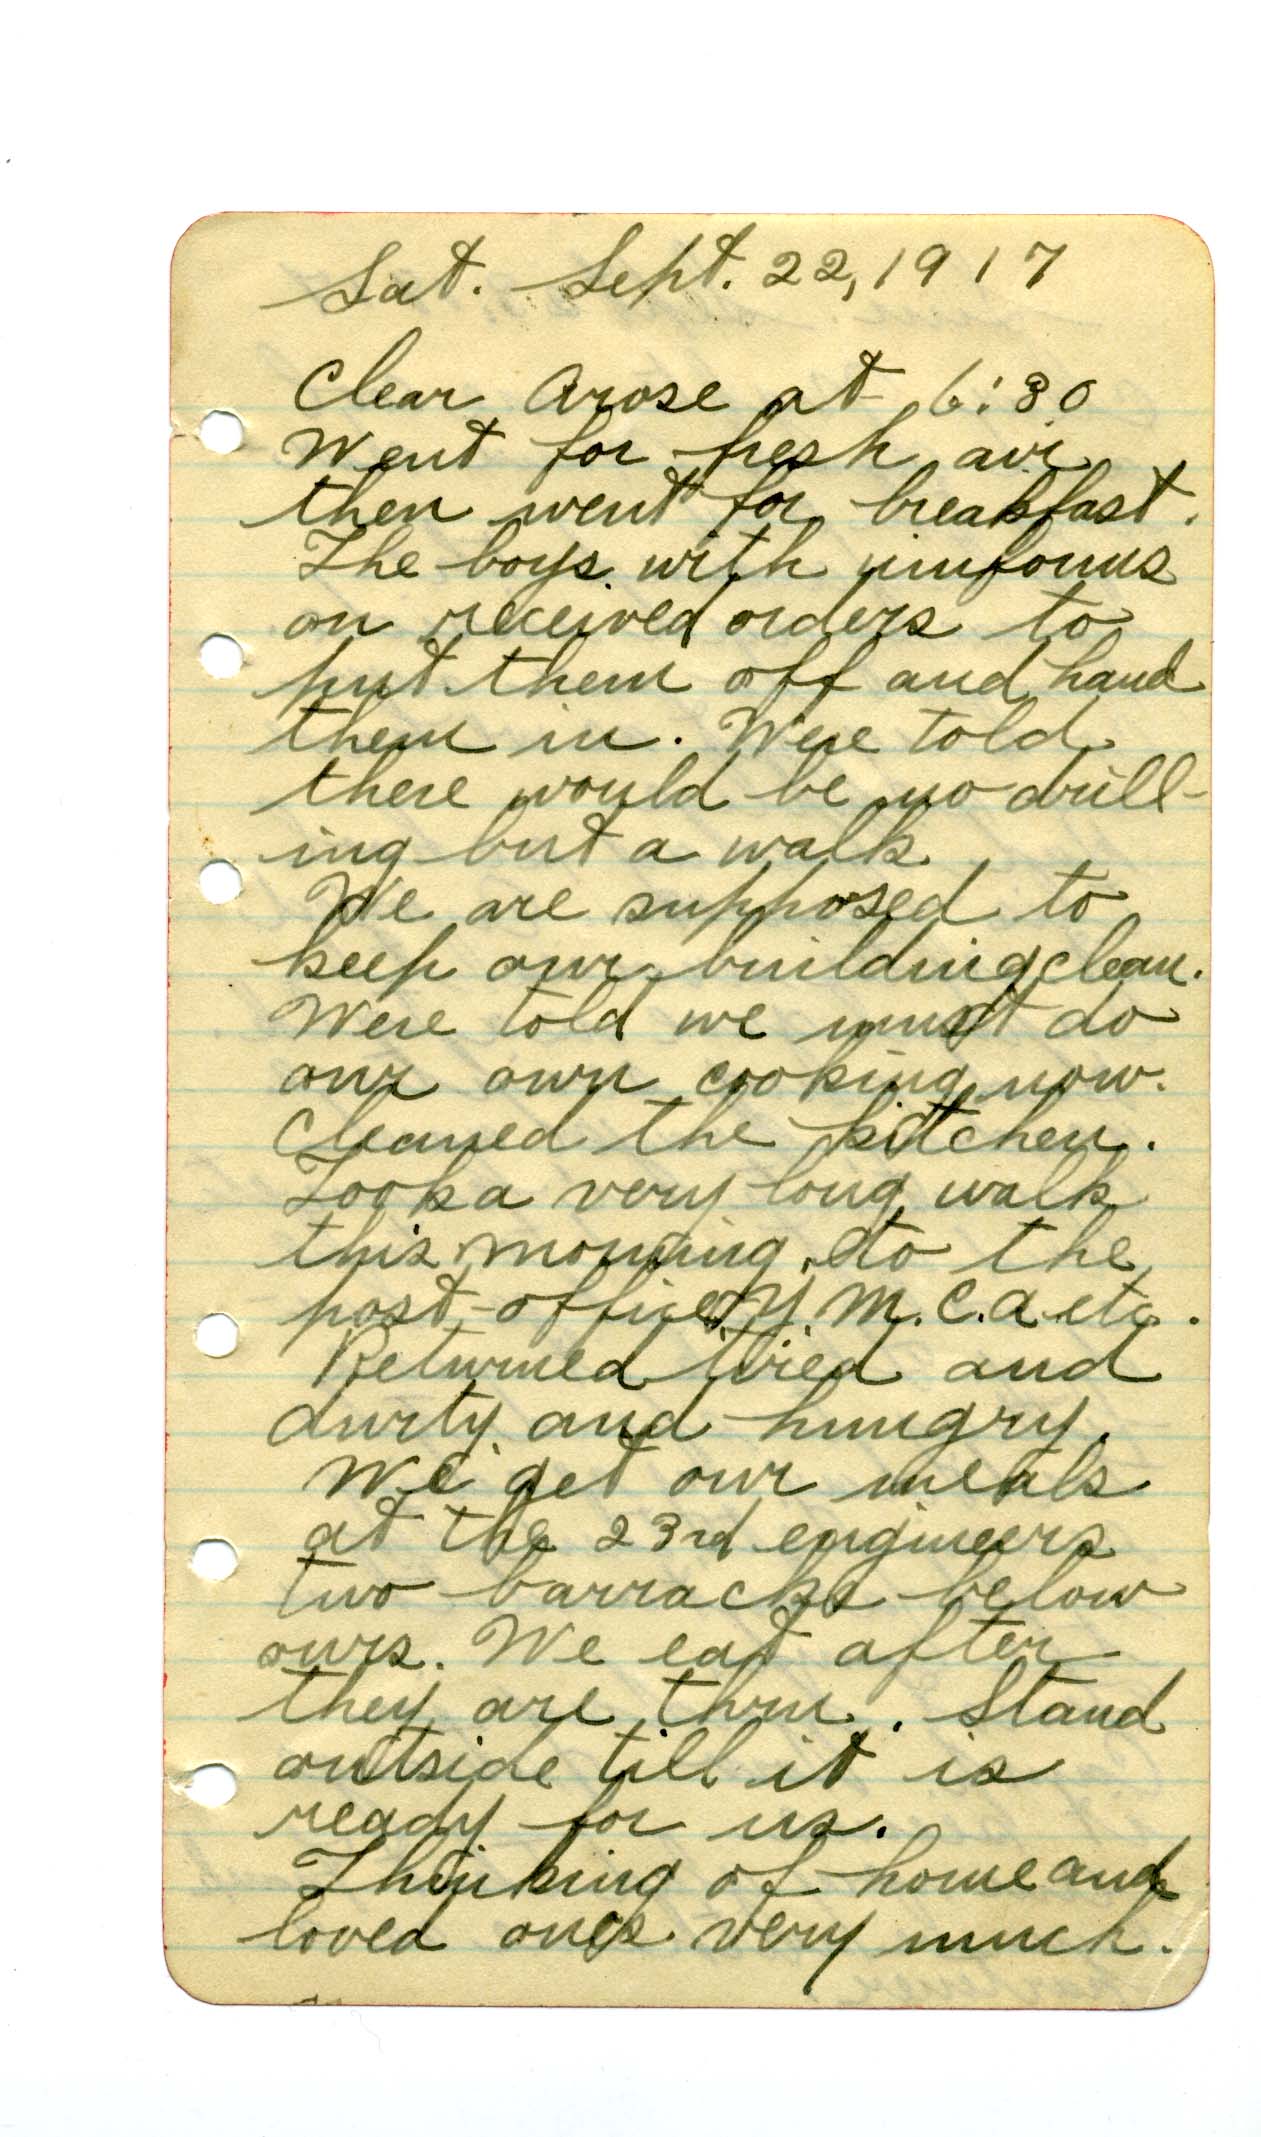 Sat. Sept. 22, 1917
Clear Arose at 6:30
Went for fresh air
then went for breakfast.
The boys with uniforms
on received orders to
put them off and hand
them in. Were told
there would be no drill-
ing but a walk.
We are supposed to
keep our building clean.
Were told we must do
our own cooking now.
Cleaned the kitchen.
Took a very long walk
this morning, to the
post-office, Y.M.C.A etc.
Returned tired and
durty and hungry.
We get our meals
at the 23rd engineers
two barracks below
ours. We eat after
they are thru. Stand
outside till it is
ready for us.
Thinking of home and
loved ones very much.